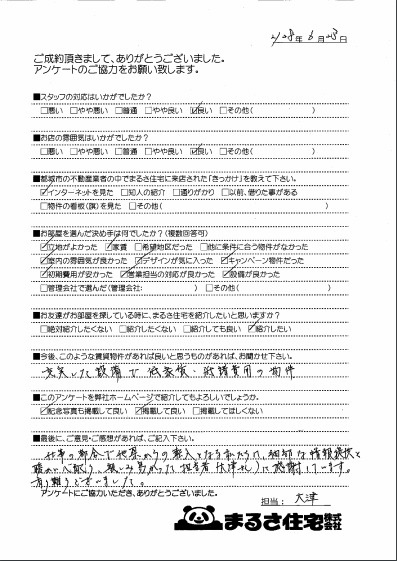 H28年6月23日
ご成約頂きまして、ありがとうございました。
アンケートのご協力をお願い致します。
■スタッフの対応はいかがでしたか？
□悪い □やや悪い □普通 □やや良い ☑良い □その他( )
■お店の雰囲気はいかがでしたか？
□悪い □やや悪い □普通 □やや良い ☑良い □その他( )
■都城市の不動産業者の中でまるさ住宅に来店された「きっかけ」を教えて下さい。
☑インターネットを見た □知人の紹介 □通りがかり □以前、借りた事がある
□物件の看板(旗)を見た □その他( )
■お部屋を選んだ決め手は何でしたか？(複数回答可)
☑立地がよかった ☑家賃 □希望地区だった □他に条件に合う物件がなかった
☑室内の雰囲気が良かった ☑デザインが気に入った ☑キャンペーン物件だった
☑初期費用が安かった ☑営業担当の対応が良かった ☑設備が良かった
□管理会社で選んだ(管理会社: ) □その他( )
■お友達がお部屋を探している時に、まるさ住宅を紹介したいと思いますか？
□絶対紹介したくない □紹介したくない □紹介しても良い ☑紹介したい
■今後、このような賃貸物件があれば良いと思うものがあれば、お聞かせ下さい。
充実した設備で低家賃・初期費用の物件
■このアンケートを弊社ホームページで紹介してもよろしいでしょうか。
☑記念写真も掲載して良い ☑掲載して良い □掲載してほしくない
■最後に、ご意見・ご感想があれば、ご記入下さい。
仕事の都合で他県からの転入となる私たちに、細部な情報提供と
暖かい心配り、親しみ易かった担当者(大津さん)に感謝しています。
有り難うございました。
アンケートにご協力いただき、ありがとうございました。
担当: 大津
まるさ住宅株式会社